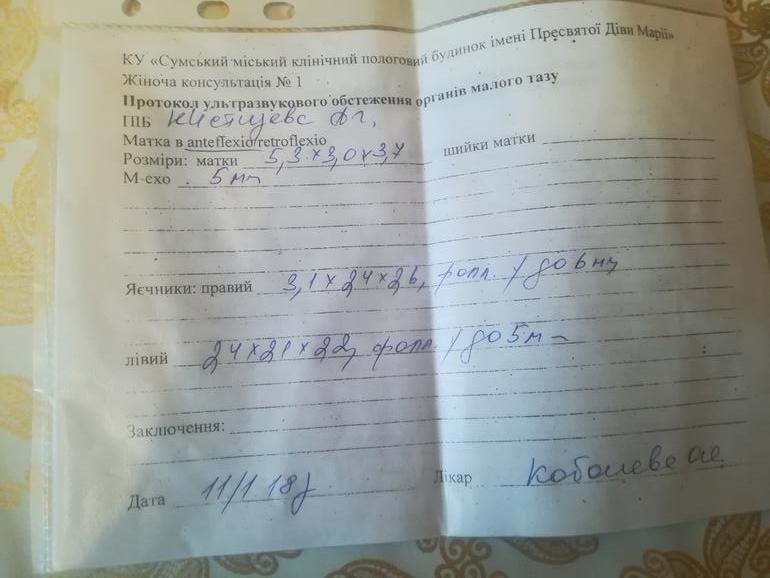 КУ «Сумський міський клінічний пологовий будинок імені Пресвятої Діви Марії»
Жіноча консультація № 1
Протокол ультразвукового обстеження органів малого тазу
ППБ
Матка в anteflexio/retroflexio
Розміри: матки 5,3 х 3,0 х 3,7 шийки матки
М-ехо 5 мм
Яєчники: правий 3,1 х 24 х 26, фолл. / до 6 мм
лівий 24 х 21 х 22, фолл / до 5 м
Заключення:
Дата 11/1 18 Лікар